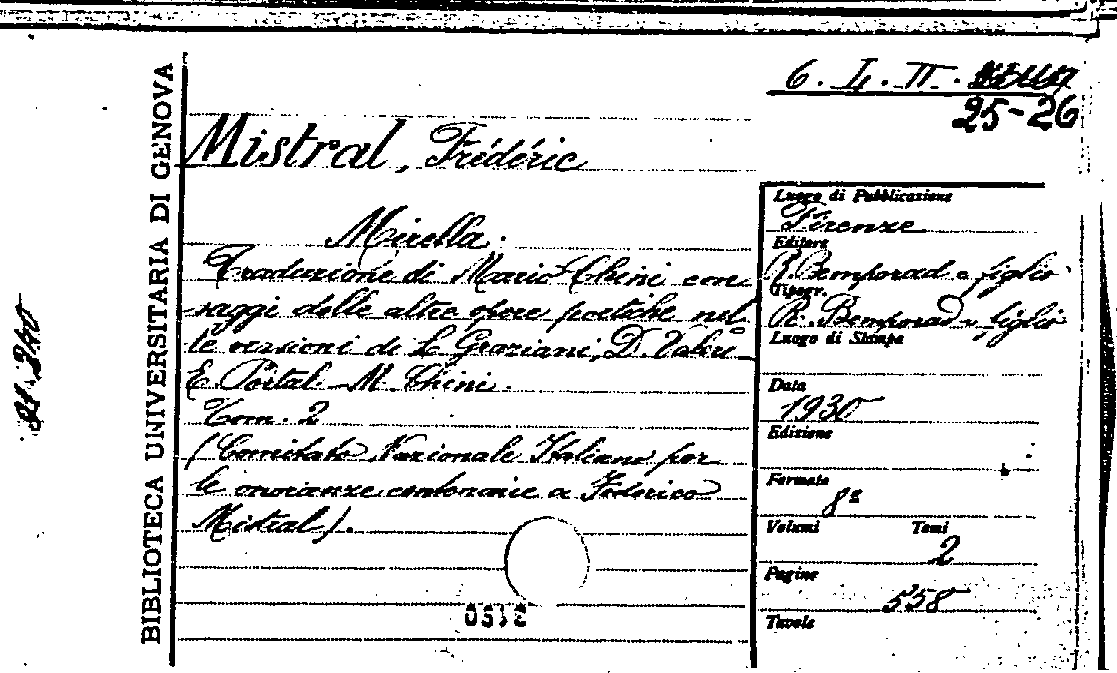 BIBLIOTECA UNIVERSITARIA DI GENOVA
6. I. II.
25-26
Mistral, Frédéric
Mirella.
Traduzione di Mario Chini con
saggi delle altre opere poetiche nel
le versioni di L. Graziani, D. Valeri
E. Portal - M. Chini.
Tom. 2
(Comitato Nazionale Italiano per
le onoranze centenarie a Federico
Mistral).
Luogo di Pubblicazione
Firenze
Editore
R. Bemporad e figlio
Tipogr.
R. Bemporad e figlio
Luogo di Stampa
Data
1930
Edizione
Formato
8º
Volumi Tomi
2
Pagine
558
Tavole